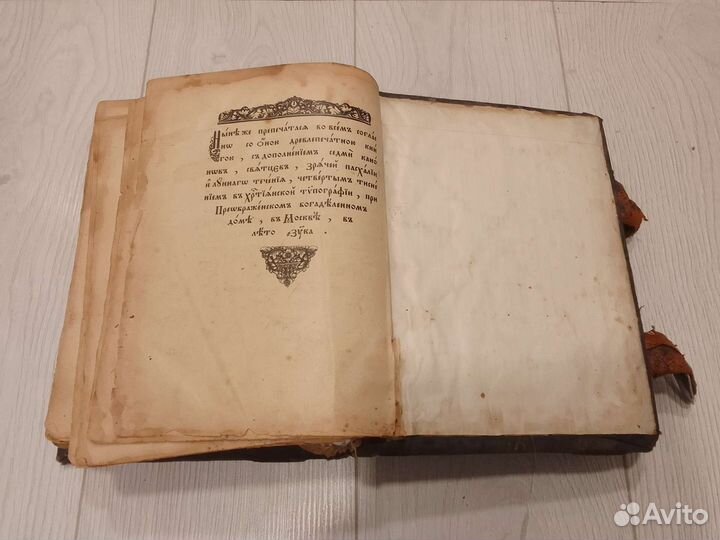 Нн҃ѣ же препеча́тася во всѐмъ согла́с
нѡ со ѻ҆́ною древлепеча́тною кни́
гою, съ дополне́нїемъ седмѝ кано́
нѡвъ, свѧ́тцєвъ, зрѧ́чей пасха́лїи,
и҆ лꙋ́ннагѡ тече́нїѧ, четве́ртымъ тисне́
нїемъ въ хрⷭ҇тїа́нской тѷпогра́фїи, при
Преѡбраже́нскомъ богадѣ́ленномъ
до́мѣ, въ Москвѣ̀, въ
лѣ́то ҂зу҃ка.
Avito